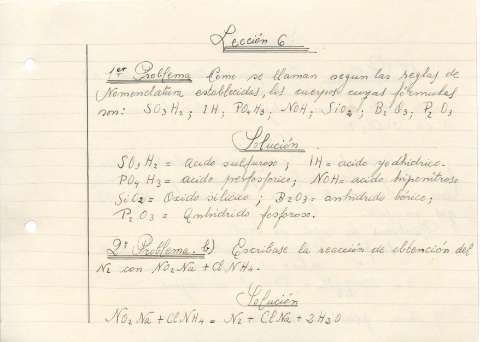 Lección 6
1er Problema Como se llaman segun las reglas de
Nomenclatura establecidas, los cuerpos cuyas fórmulas
son: SO3H2; IH; PO4H3; NOH; SiO2; B2O3; P2O3
Solución
SO3H2 = acido sulfuroso; IH = acido yodhidrico.
PO4H3 = acido perfosforico; NOH = acido hiponitroso
SiO2 = Oxido silicico; B2O3 = anhidrido bórico;
P2O3 = Anhidrido fosforoso.
2º Problema. b) Escribase la reacción de obtención del
N2 con NO2Na + ClNH4.
Solución
NO2Na + ClNH4 = N2 + ClNa + 2H2O